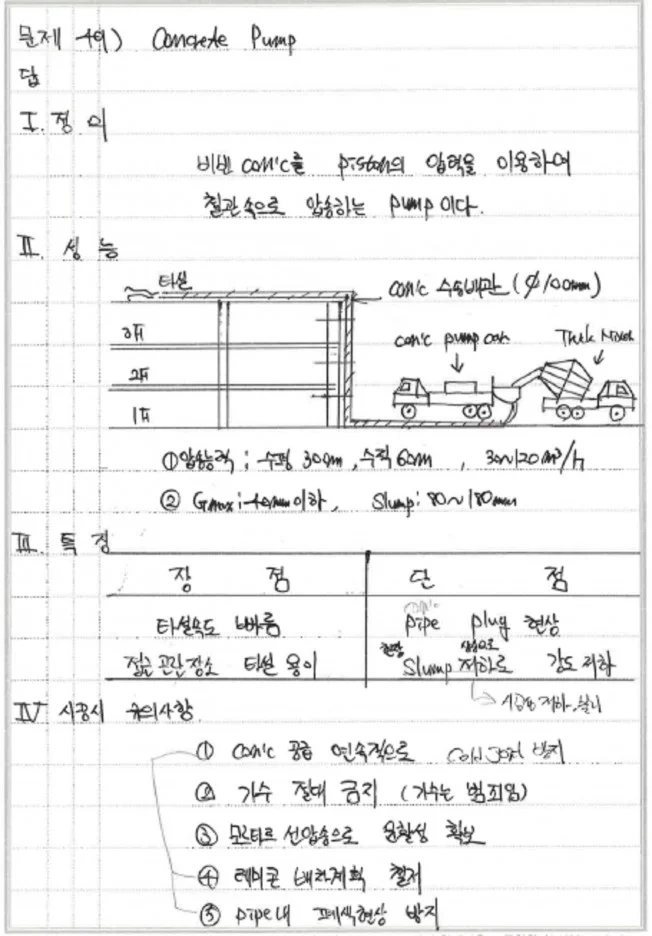 문제 49) Concrete Pump
답
I. 정 의
비빈 con'c를 piston의 압력을 이용하여
철관 속으로 압송하는 pump이다.
II. 성 능
타설
con'c 수송배관 (∅100mm)
3F
con'c pump car
Truck Mixer
2F
1F
① 압송능력 : 수평 300m, 수직 60m, 30~120m³/h
② Gmax : 40mm이하, Slump : 80~180mm
III. 특 징
장 점 단 점
con'c
타설속도 빠름 pipe plug 현상
접근 곤란장소 타설 용이 Slump 저하로 강도 저하
시공성 저하,
IV 시공시 유의사항
① con'c 공급 연속적으로 cold joint 방지
② 가수 절대 금지 (가수는 범죄임)
③ 모르타르 선압송으로 윤활성 확보
④ 레미콘 배차계획 철저
⑤ pipe내 폐색현상 방지